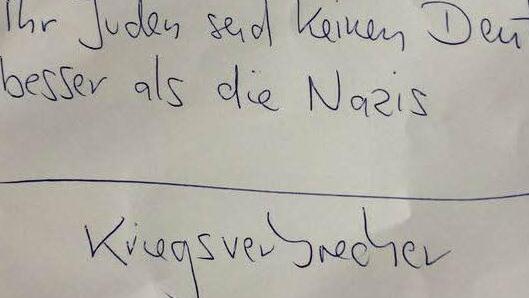 Ihr Juden seid keinen Deut
besser als die Nazis
Kriegsverbrecher